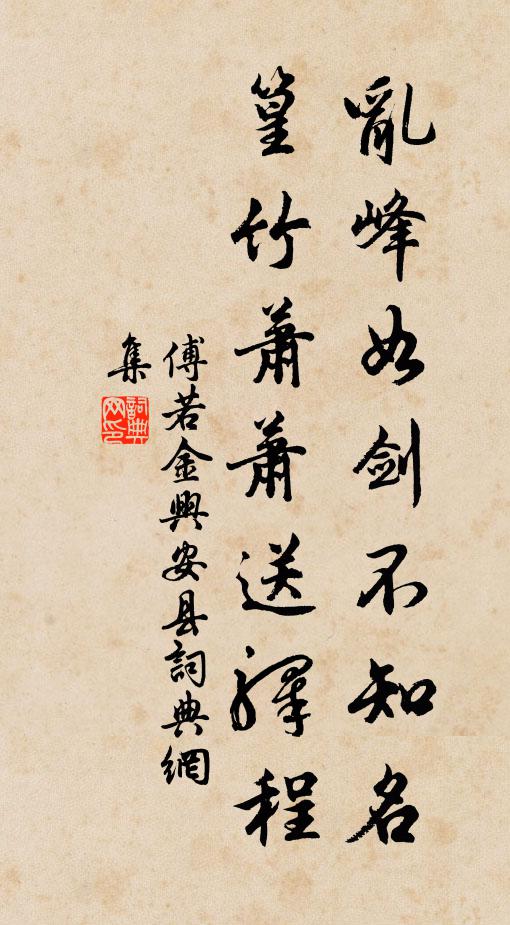 亂峰如劍不知名
篁竹蕭蕭送驛程
傅若金興安县詞典網
集
詞典网印